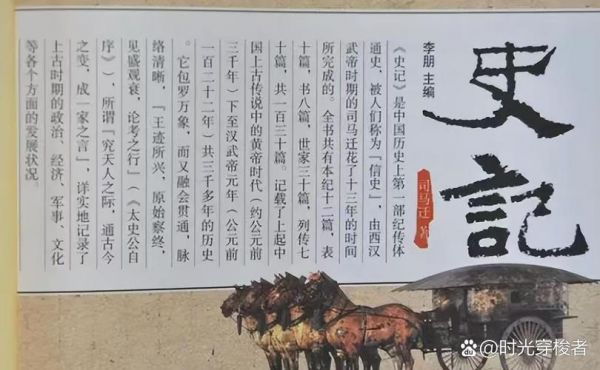 史記
司马迁 著
李朋 主编
《史记》是中国历史上第一部纪传体
通史，被人们称为「信史」，由西汉
武帝时期的司马迁花了十三年的时间
所完成的。全书共有本纪十二篇，表
十篇，书八篇，世家三十篇，列传七
十篇，共一百三十篇。记载了上起中
国上古传说中的黄帝时代（约公元前
三千年）下至汉武帝元年（公元前
一百二十二年）共三千多年的历史
。它包罗万象，而又融会贯通，脉
络清晰，「王迹所兴，原始察终，
见盛观衰，论考之行」（《太史公自
序》），所谓「究天人之际，通古今
之变，成一家之言」，详实地记录了
上古时期的政治、经济、军事、文化
等各个方面的发展状况。
@时光穿梭者